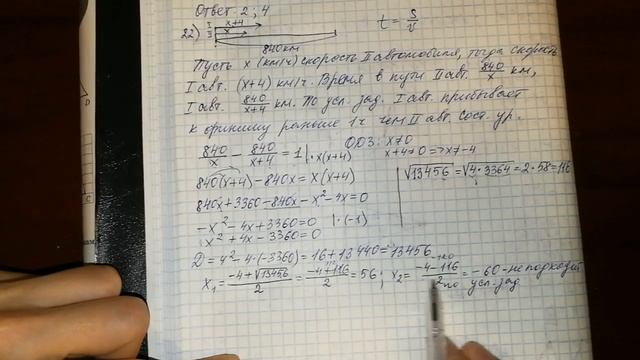 Ответ: 2 ; 4
22) I II x+4 x t = S/v
840км
Пусть x (км/ч) скорость II автомобиля, тогда скорость
I авт. (x+4) км/ч. Время в пути II авт. 840/x км,
I авт. 840/(x+4) км. По усл. зад. I авт. прибывает
к финишу раньше 1ч чем II авт. Сост. ур.
840/x - 840/(x+4) = 1 | · x(x+4) ОДЗ: x≠0
x+4≠0 => x≠-4
840(x+4) - 840x = x(x+4) √13456 = √4·3364 = 2·58 = 116
840x + 3360 - 840x - x² - 4x = 0
-x² - 4x + 3360 = 0 | · (-1)
x² + 4x - 3360 = 0
D = 4² - 4·(-3360) = 16 + 13440 = 13456
x₁ = (-4+√13456)/2 = (-4+116)/2 = 56 ; x₂ = (-4-116)/2 = -60 - не подходит
по усл. зад.